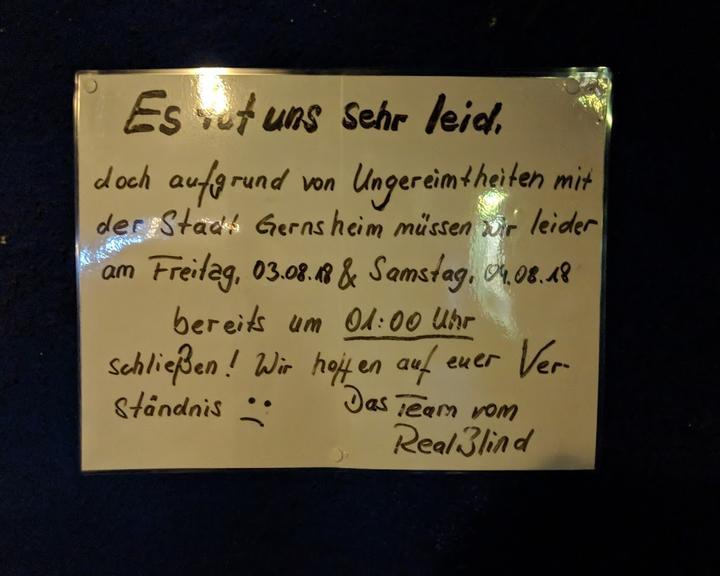 Es tut uns sehr leid.
doch aufgrund von Ungereimtheiten mit
der Stadt Gernsheim müssen wir leider
am Freitag, 03.08.18 & Samstag, 04.08.18
bereits um 01:00 Uhr
schließen! Wir hoffen auf euer Ver-
ständnis
Das Team vom
RealBlind